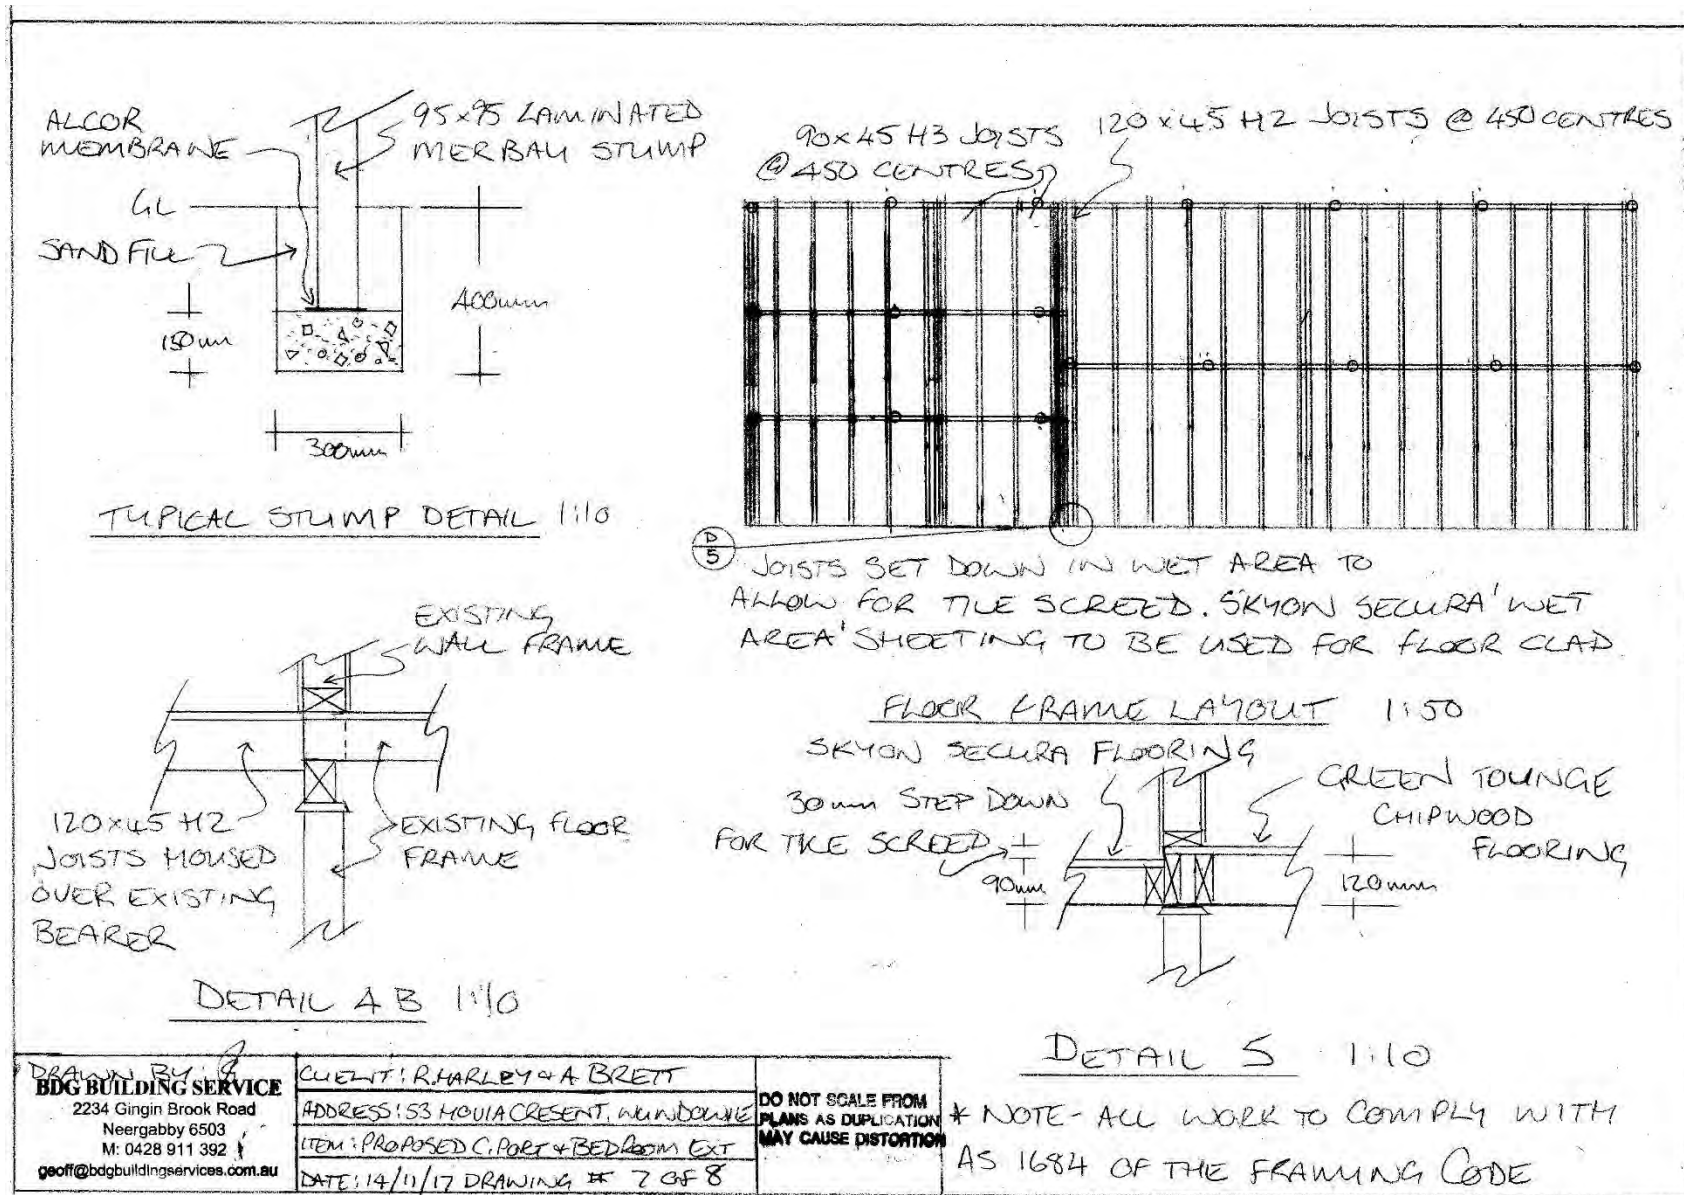 ALCOR
MEMBRANE
95x95 LAMINATED
MERBAU STUMP
GL
SAND FILL
150mm
400mm
300mm
TYPICAL STUMP DETAIL 1:10
90x45 H3 JOISTS
@ 450 CENTRES
120x45 H2 JOISTS @ 450 CENTRES
D
5
JOISTS SET DOWN IN WET AREA TO
ALLOW FOR TILE SCREED. SKYON SECURA 'WET
AREA' SHEETING TO BE USED FOR FLOOR CLAD
FLOOR FRAME LAYOUT 1:50
EXISTING
WALL FRAME
120x45 H2
JOISTS HOUSED
OVER EXISTING
BEARER
EXISTING FLOOR
FRAME
DETAIL 4B 1:10
SKYON SECURA FLOORING
30mm STEP DOWN
FOR TILE SCREED
90mm
GREEN TOUNGE
CHIPWOOD
FLOORING
120mm
DETAIL 5 1:10
* NOTE - ALL WORK TO COMPLY WITH
AS 1684 OF THE FRAMING CODE
DRAWN BY:
BDG BUILDING SERVICE
2234 Gingin Brook Road
Neergabby 6503
M: 0428 911 392
geoff@bdgbuildingservices.com.au
CLIENT: R.HARLEY & A BRETT
ADDRESS: 53 HOVIA CRESENT, WUNDOWIE
ITEM: PROPOSED C.PORT & BEDROOM EXT
DATE: 14/11/17 DRAWING # 7 OF 8
DO NOT SCALE FROM
PLANS AS DUPLICATION
MAY CAUSE DISTORTION